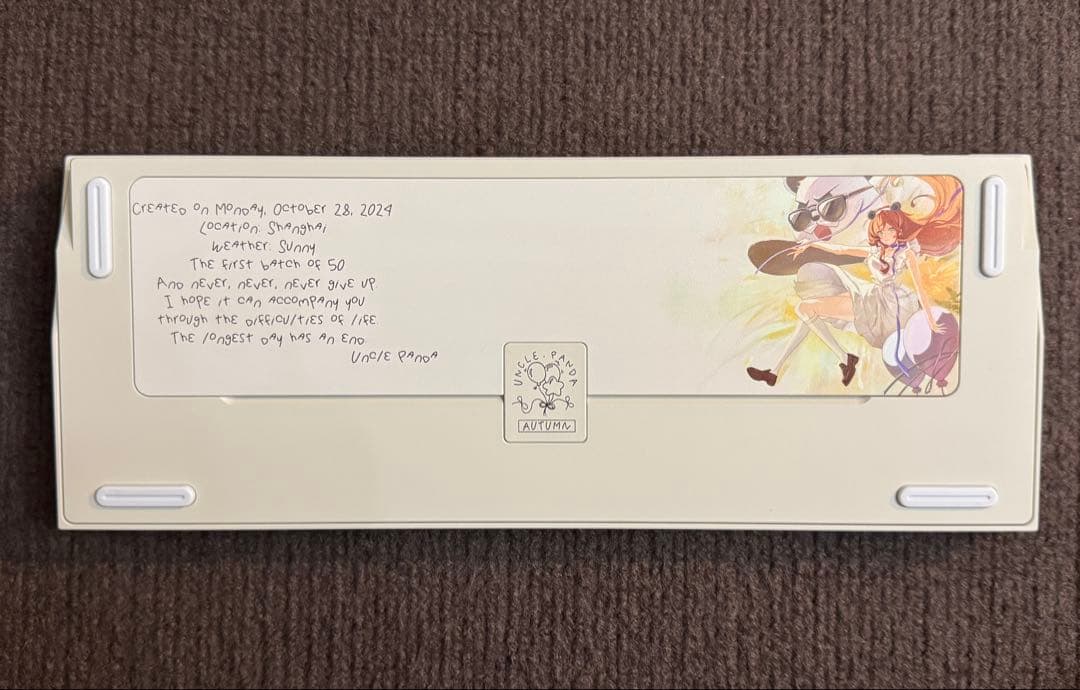 Created on Monday, October 28, 2024
Location: Shanghai
Weather: Sunny
The first batch of 50
And never, never, never give up.
I hope it can accompany you
through the difficulties of life.
The longest day has an end.
Uncle Panda
UNCLE·PANDA
AUTUMN